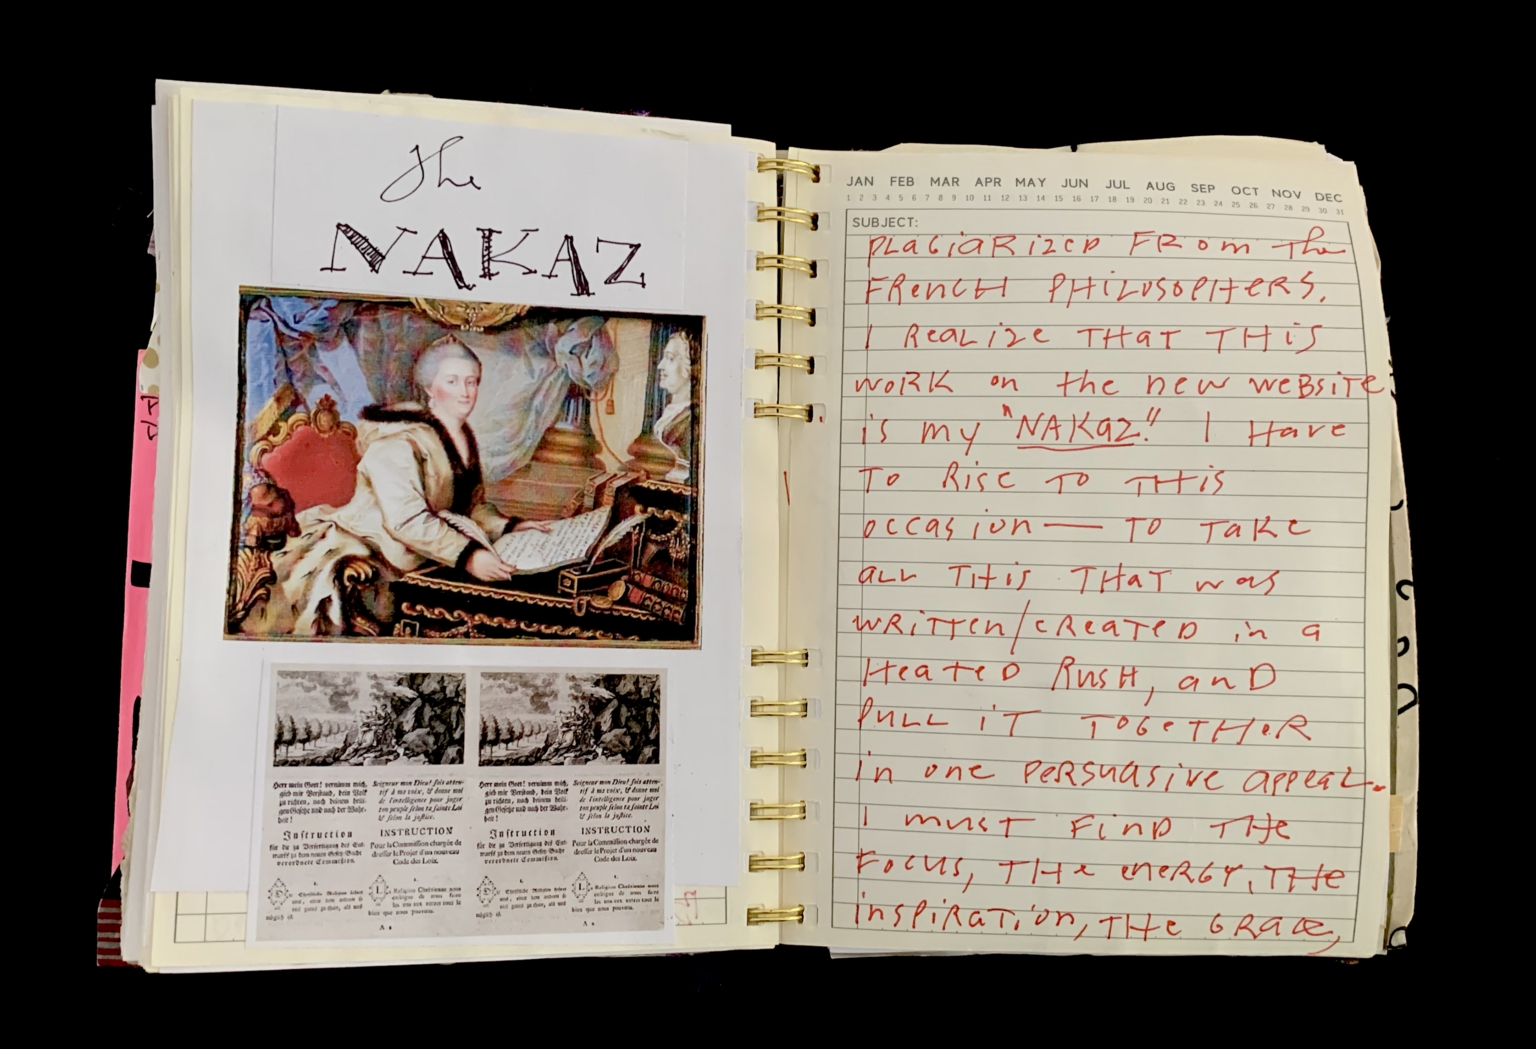 The
NAKAZ
Herr mein Gott! vernimm mich,
gieb mir Verstand, dein Volk
zu richten, nach deinem heili-
gen Gesetze und nach der Wahr-
heit!
Instruction
für die zu Verfertigung des Ent-
wurfs zu dem neuen Gesetz-Buche
verordnete Commißion.
Seigneur mon Dieu! sois atten-
tif à ma voix, & donne moi
de l'intelligence pour juger
ton peuple selon ta sainte Loi
& selon la justice.
INSTRUCTION
Pour la Commission chargée de
dresser le Projet d'un nouveau
Code des Loix.
1.
1.
La Religion Chrétienne nous
enseigne de nous faire
les uns aux autres tout le
bien que nous pouvons.
A
Herr mein Gott! vernimm mich,
gieb mir Verstand, dein Volk
zu richten, nach deinem heili-
gen Gesetze und nach der Wahr-
heit!
Instruction
für die zu Verfertigung des Ent-
wurfs zu dem neuen Gesetz-Buche
verordnete Commißion.
Seigneur mon Dieu! sois atten-
tif à ma voix, & donne moi
de l'intelligence pour juger
ton peuple selon ta sainte Loi
& selon la justice.
INSTRUCTION
Pour la Commission chargée de
dresser le Projet d'un nouveau
Code des Loix.
1.
1.
La Religion Chrétienne nous
enseigne de nous faire
les uns aux autres tout le
bien que nous pouvons.
A
JAN FEB MAR APR MAY JUN JUL AUG SEP OCT NOV DEC
1 2 3 4 5 6 7 8 9 10 11 12 13 14 15 16 17 18 19 20 21 22 23 24 25 26 27 28 29 30 31
SUBJECT:
PLAGIARIZED FROM The
FRENCH PHILOSOPHERS.
I REALIZE THAT THIS
WORK on the new WEBSITE
is my "NAKAZ." I HAVE
TO RISE TO THIS
OCCASION — TO TAKE
ALL THIS THAT WAS
WRITTEN/CREATED in a
HEATED RUSH, AND
PULL IT TOGETHER
in one PERSUASIVE APPEAL.
I MUST FIND THE
FOCUS, THE ENERGY, THE
INSPIRATION, THE GRACE,